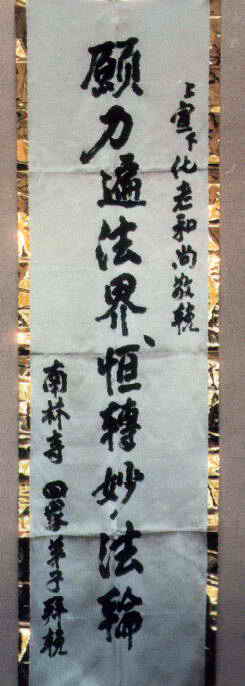 上宣下化老和尚敬輓
願力遍法界恒轉妙法輪
南林寺 四眾弟子拜輓